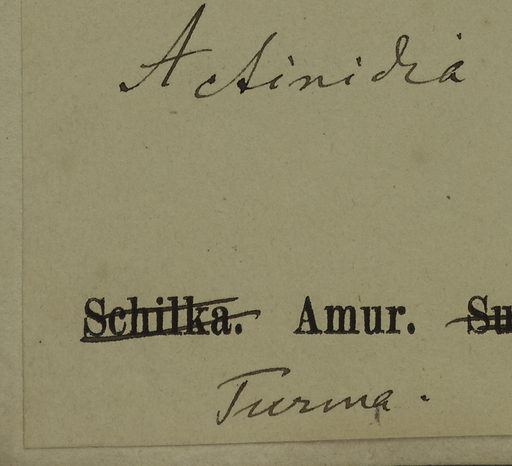 Actinidia
Schilka. Amur. Su
Turma.